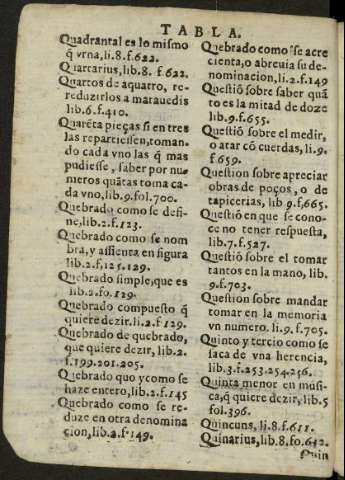 TABLA.
Quadrantal es lo mismo
q̃ vrna, li.8.f.622.
Quartarius, lib.8. f.622.
Quartos de aquatro, re-
reduzirlos a marauedis
lib.6.f.410.
Quarẽta pieças si en tres
las repartiessen, toman-
do cada vno las q̃ mas
pudiesse, saber por nu-
meros quãtas toma ca-
da vno, lib.9.fol.700.
Quebrado como se defi-
ne, lib.2.f.123.
Quebrado como se nom
bra, y assienta en figura
lib.2.f,125.129.
Quebrado simple, que es
lib.2.fo.129.
Quebrado compuesto q̃
quiere dezir. li.2.f 129.
Quebrado de quebrado,
que quiere dezir, lib.2.
f.199.201.205.
Quebrado quo y como se
haze entero, lib.2.f.145
Quebrado como se re-
duze en otra denomina
cion, lib.2.f.149.
Quebrado como se acre
cienta, o abreuia su de-
nominacion, li.2.f.149
Questiõ sobre saber quã
to es la mitad de doze
lib.9.f.655.
Questiõ sobre el medir,
o atar cõ cuerdas, li.9.
f.659.
Question sobre apreciar
obras de poços, o de
tapicerias, lib 9.f,665.
Questiõ en que se cono-
ce no tener respuesta,
lib.7.f.527.
Questiõ sobre el tomar
tantos en la mano, lib.
9.f.703.
Question sobre mandar
tomar en la memoria
vn numero. li.9.f.705.
Quinto y tercio como se
saca de vna herencia,
lib.3.f.253.254.256.
Quinta menor en musi-
ca, q̃ quiere dezir, lib.5
fol.396.
Quincuns, li.8.f.611.
Quinarius, lib.8, fo.612.
Quin